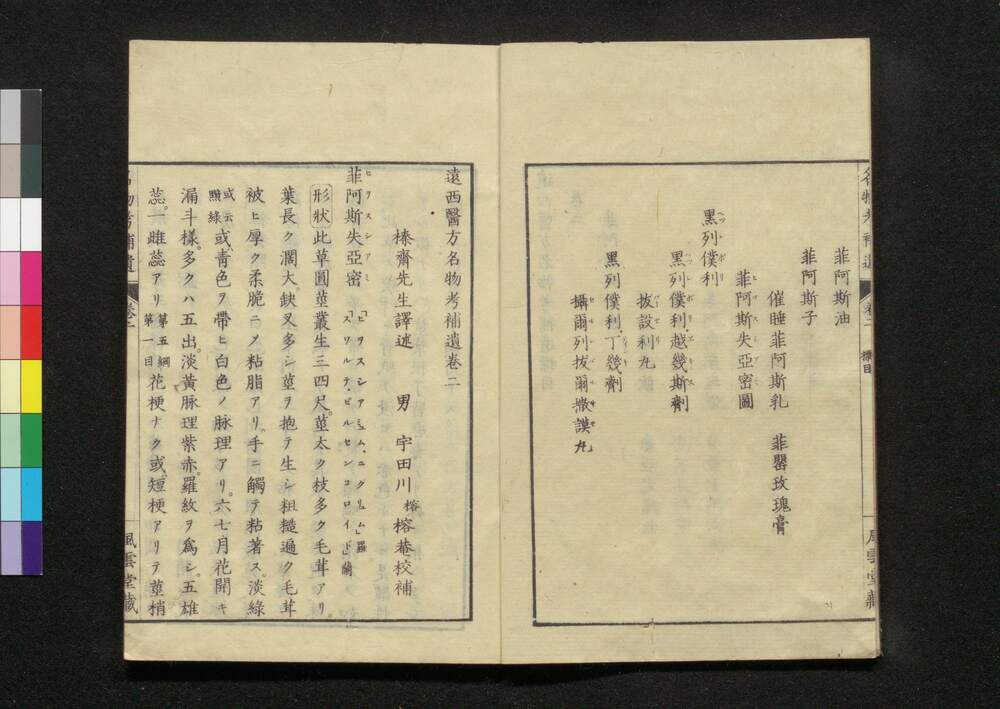 菲阿斯油
菲阿斯子
催睡菲阿斯乳　菲罌玫瑰膏
菲阿斯失亞密圖
黑列僕利
黑列僕利越幾斯劑
拔設利丸
黑列僕利丁幾劑
攝爾列拔爾撒謨丸
遠西醫方名物考補遺卷二
榛齋先生譯述　男　宇田川　榕　榕菴校補
菲阿斯失亞密
「ヒヲスシアミュム、ニグリュム」羅
「スワルテ、ビルセンコロイド」蘭
形狀此草圓莖叢生三四尺莖太ク枝多ク毛茸アリ。
葉長ク濶大缺叉多シ莖ヲ抱テ生シ粗糙遍ク毛茸
被ヒ厚ク柔脆ニノ粘脂アリ。手ニ觸テ粘著ス。淡綠
或云黲綠或靑色ヲ帶ヒ白色ノ脉理アリ。六七月花開キ
漏斗樣。多クハ五出。淡黃脉理紫赤。羅紋ヲ爲シ。五雄
蕊。一雌蕊アリ第五綱第一目花梗ナク或短梗アリテ莖梢
名物考補遺
卷二
風雲堂藏